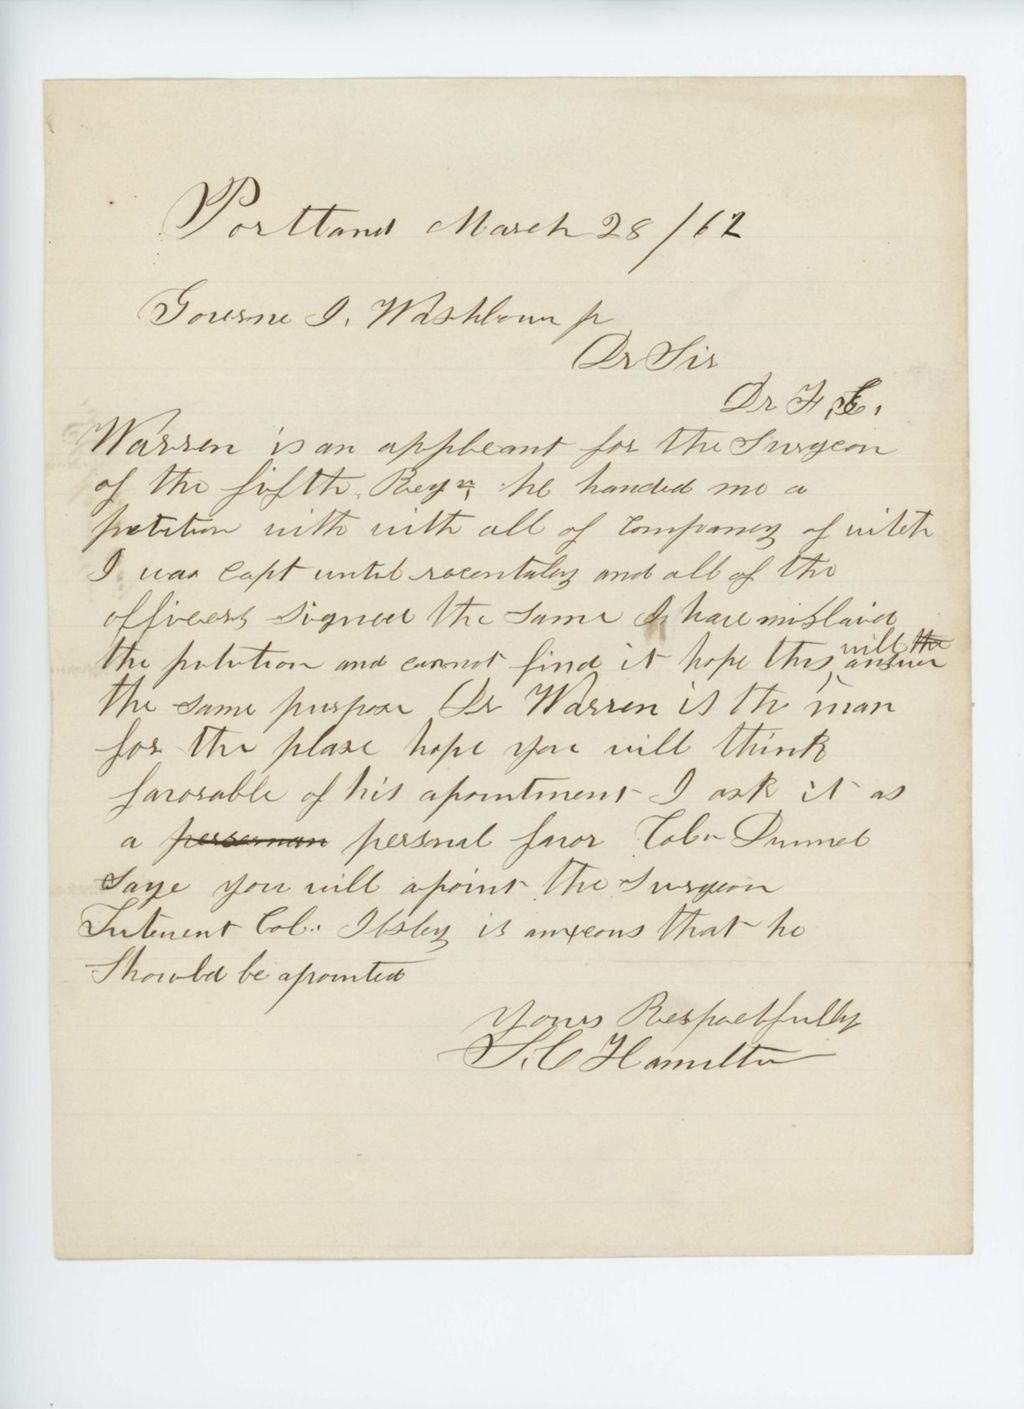 Portland March 28/62
Governe I. Washburn jr
Dr Sir
Dr F. E.
Warren is an applicant for the Surgeon
of the fifth. Regn, he handed me a
petition with with all of company of witch
I was Capt until recentaley and all of the
officers signed the same I have mislaid
the petition and cannot find it hope this will the answer
the same purpose Dr Warren is the man
for the plase hope you will think
favorable of his apointment I ask it as
a personan persnal favor Col. Dunnel
saye you will apoint the Surgeon
Lutenent Col. Ilsley is anxeous that he
Should be apointed
Yours Respectfully
S. C Hamilton